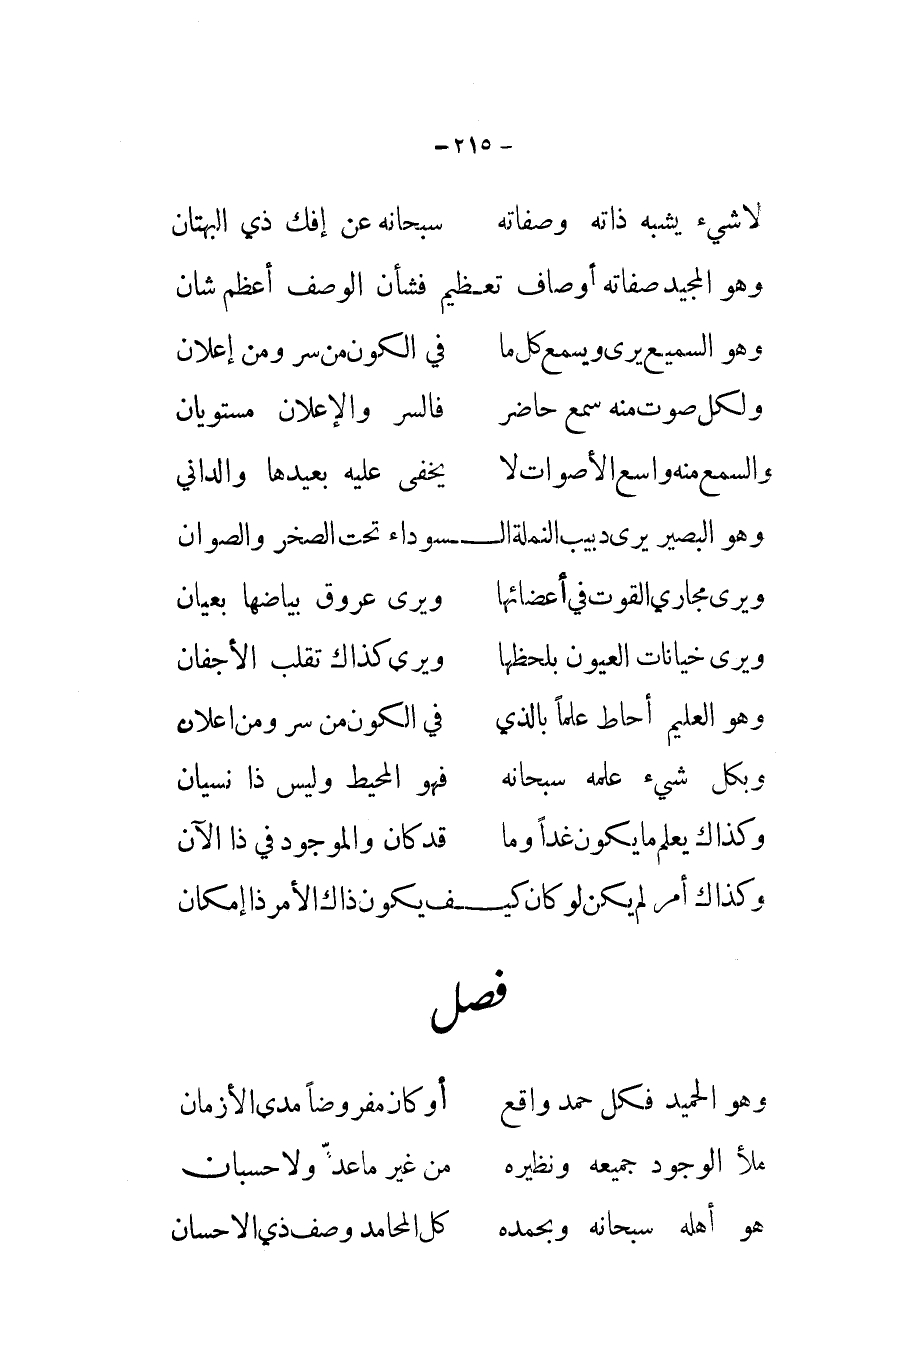 - ٢١٥ -
لاشيء يشبه ذاته وصفاته سبحانه عن إفك ذي البهتان
وهو المجيد صفاته أوصاف تعـظيم فشأن الوصف أعظم شان
وهو السميع يرى ويسمع كل ما في الكون من سر ومن إعلان
ولكل صوت منه سمع حاضر فالسر والإعلان مستويان
والسمع منه واسع الأصوات لا يخفى عليه بعيدها والداني
وهو البصير يرى دبيب النملة الـسوداء تحت الصخر والصوان
ويرى مجاري القوت في أعضائها ويرى عروق بياضها بعيان
ويرى خيانات العيون بلحظها ويرى كذاك تقلب الأجفان
وهو العليم أحاط علماً بالذي في الكون من سر ومن اعلان
وبكل شيء علمه سبحانه فهو المحيط وليس ذا نسيان
وكذاك يعلم ما يكون غداً وما قد كان والموجود في ذا الآن
وكذاك أمر لم يكن لو كان كيـف يكون ذاك الأمر ذا إمكان
فصل
وهو الحميد فكل حمد واقع أو كان مفروضاً مدى الأزمان
ملأ الوجود جميعه ونظيره من غير ما عدّ ولا حسبان
هو أهله سبحانه وبحمده كل المحامد وصف ذي الاحسان